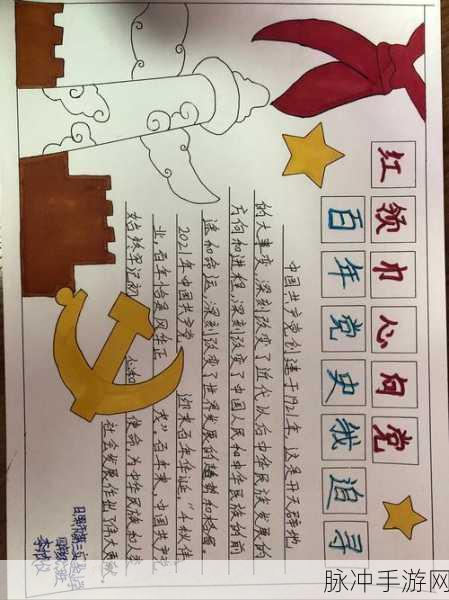 红领巾心向党
百年党史我追寻
中国共产党创建于1921年,这是开天辟地
的大事变,深刻改变了近代以后中华民族发展的
方向和进程,深刻改变了中国人民和中华民族的前
途和命运,深刻改变了世界发展的趋势和格局。
2021年中国共产党 迎来百年华诞,“千秋伟
业,百年恰是风华正 茂”。百年来,中国共产党
始终牢记初 心和 使命,为中华民族和人类
社会发展作出了伟大贡献。
日照市第三实验小学
脉冲手游网